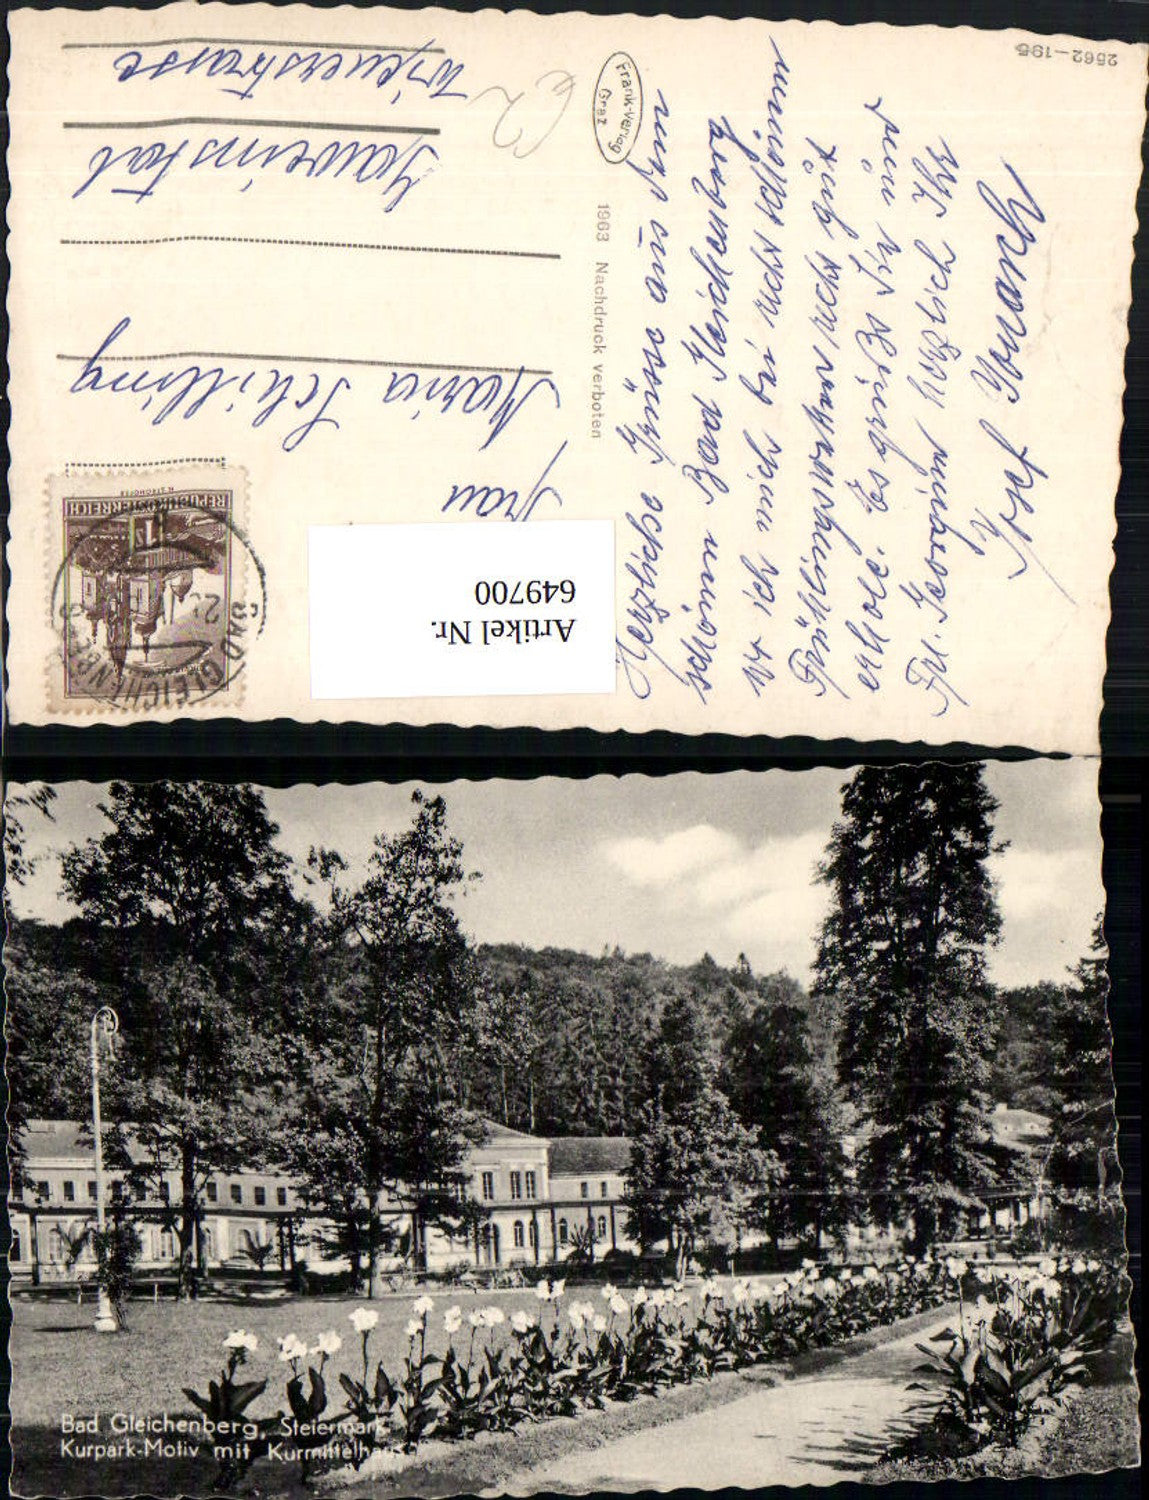 Herzliche Grüsse aus dem
schönen Bad Gleichenberg
wo ich mich bei recht schönem
Frühlingswetter recht gut
erhole. Es grüßt Sie und
Frl. Georgine herzlich Ihr
Josef
Frau
Maria Schilling
Gaweinstal
Wienerstrasse
Frank-Verlag
Graz
1963 Nachdruck verboten
2562-195
REPUBLIK ÖSTERREICH
BAD GLEICHENBERG
Artikel Nr.
649700
Bad Gleichenberg, Steiermark
Kurpark-Motiv mit Kurmittelhaus